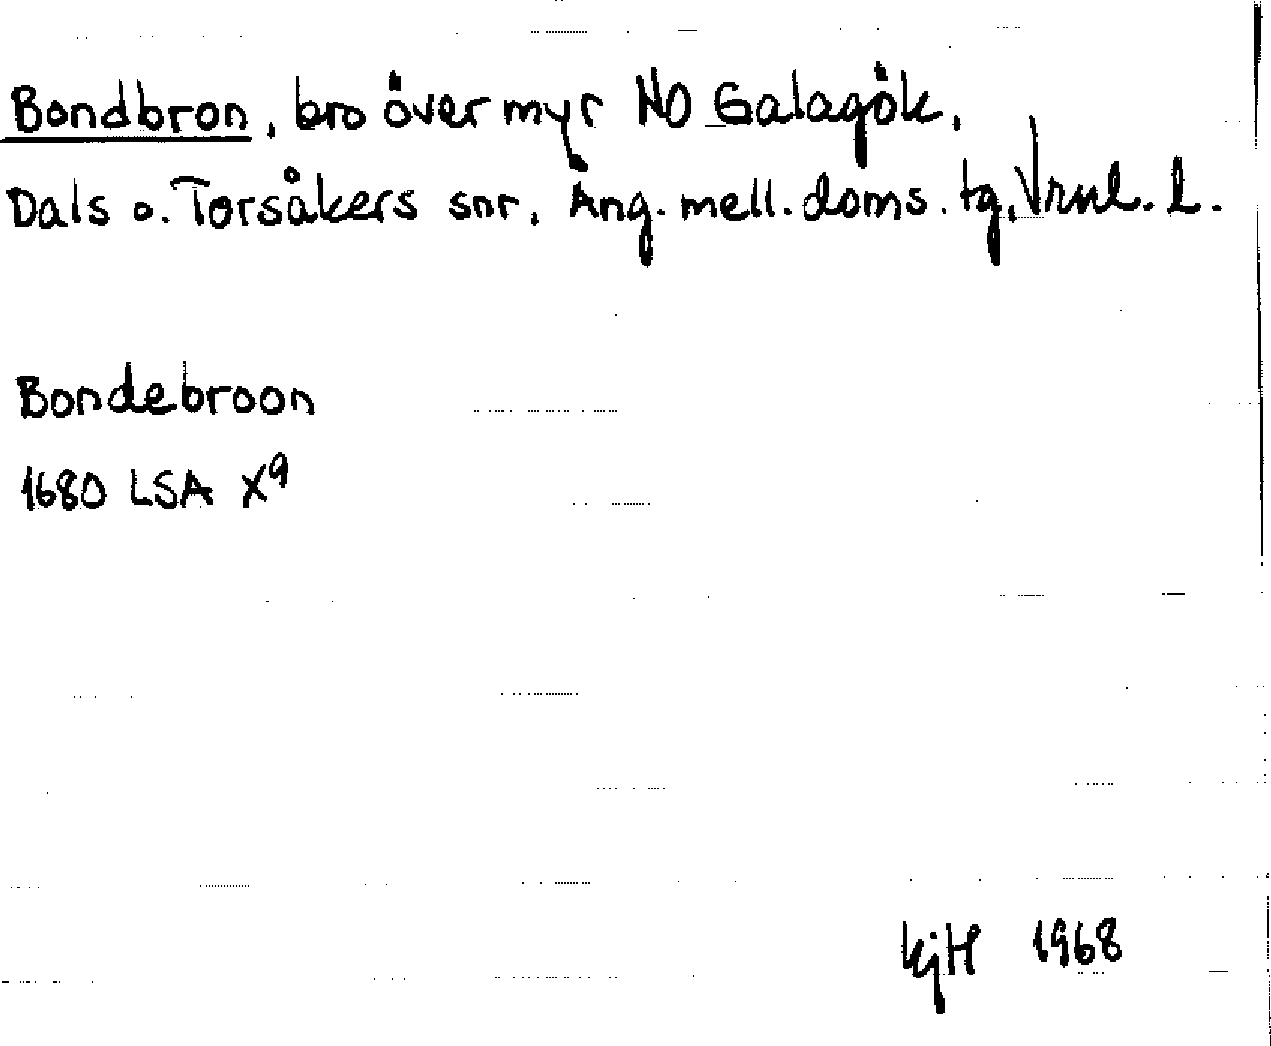 Bondbron, bro över myr NO Galagök,
Dals o. Torsåkers snr, Ång. mell. doms. tg, Vrnl. l.
Bondebroon
1680 LSA X9
KjH 1968